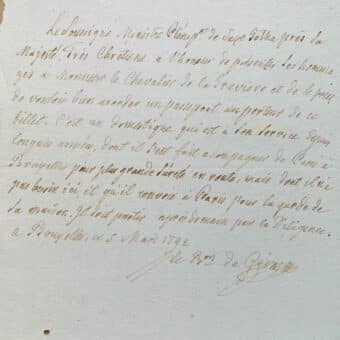 Le soussigné Ministre Plénip.re de Saxe Gotha près Sa
Majesté Très Chrétienne a l'honneur de présenter ses homma-
ges à Monsieur le Chevalier de la Graviere et de le prier
de vouloir bien accorder un passeport au porteur de ce
billet. C'est un domestique qui est à son service depuis
longues années, dont il s'est fait accompagner de Caen à
Bruxelles pour plus grande sureté en route, mais dont il n'a
pas besoin ici et qu'il renvoie à Paris pour la garde de
sa maison. Il doit partir après demain par la Diligence.
à Bruxelles, ce 5 Mars 1792
le B.on de Grimm